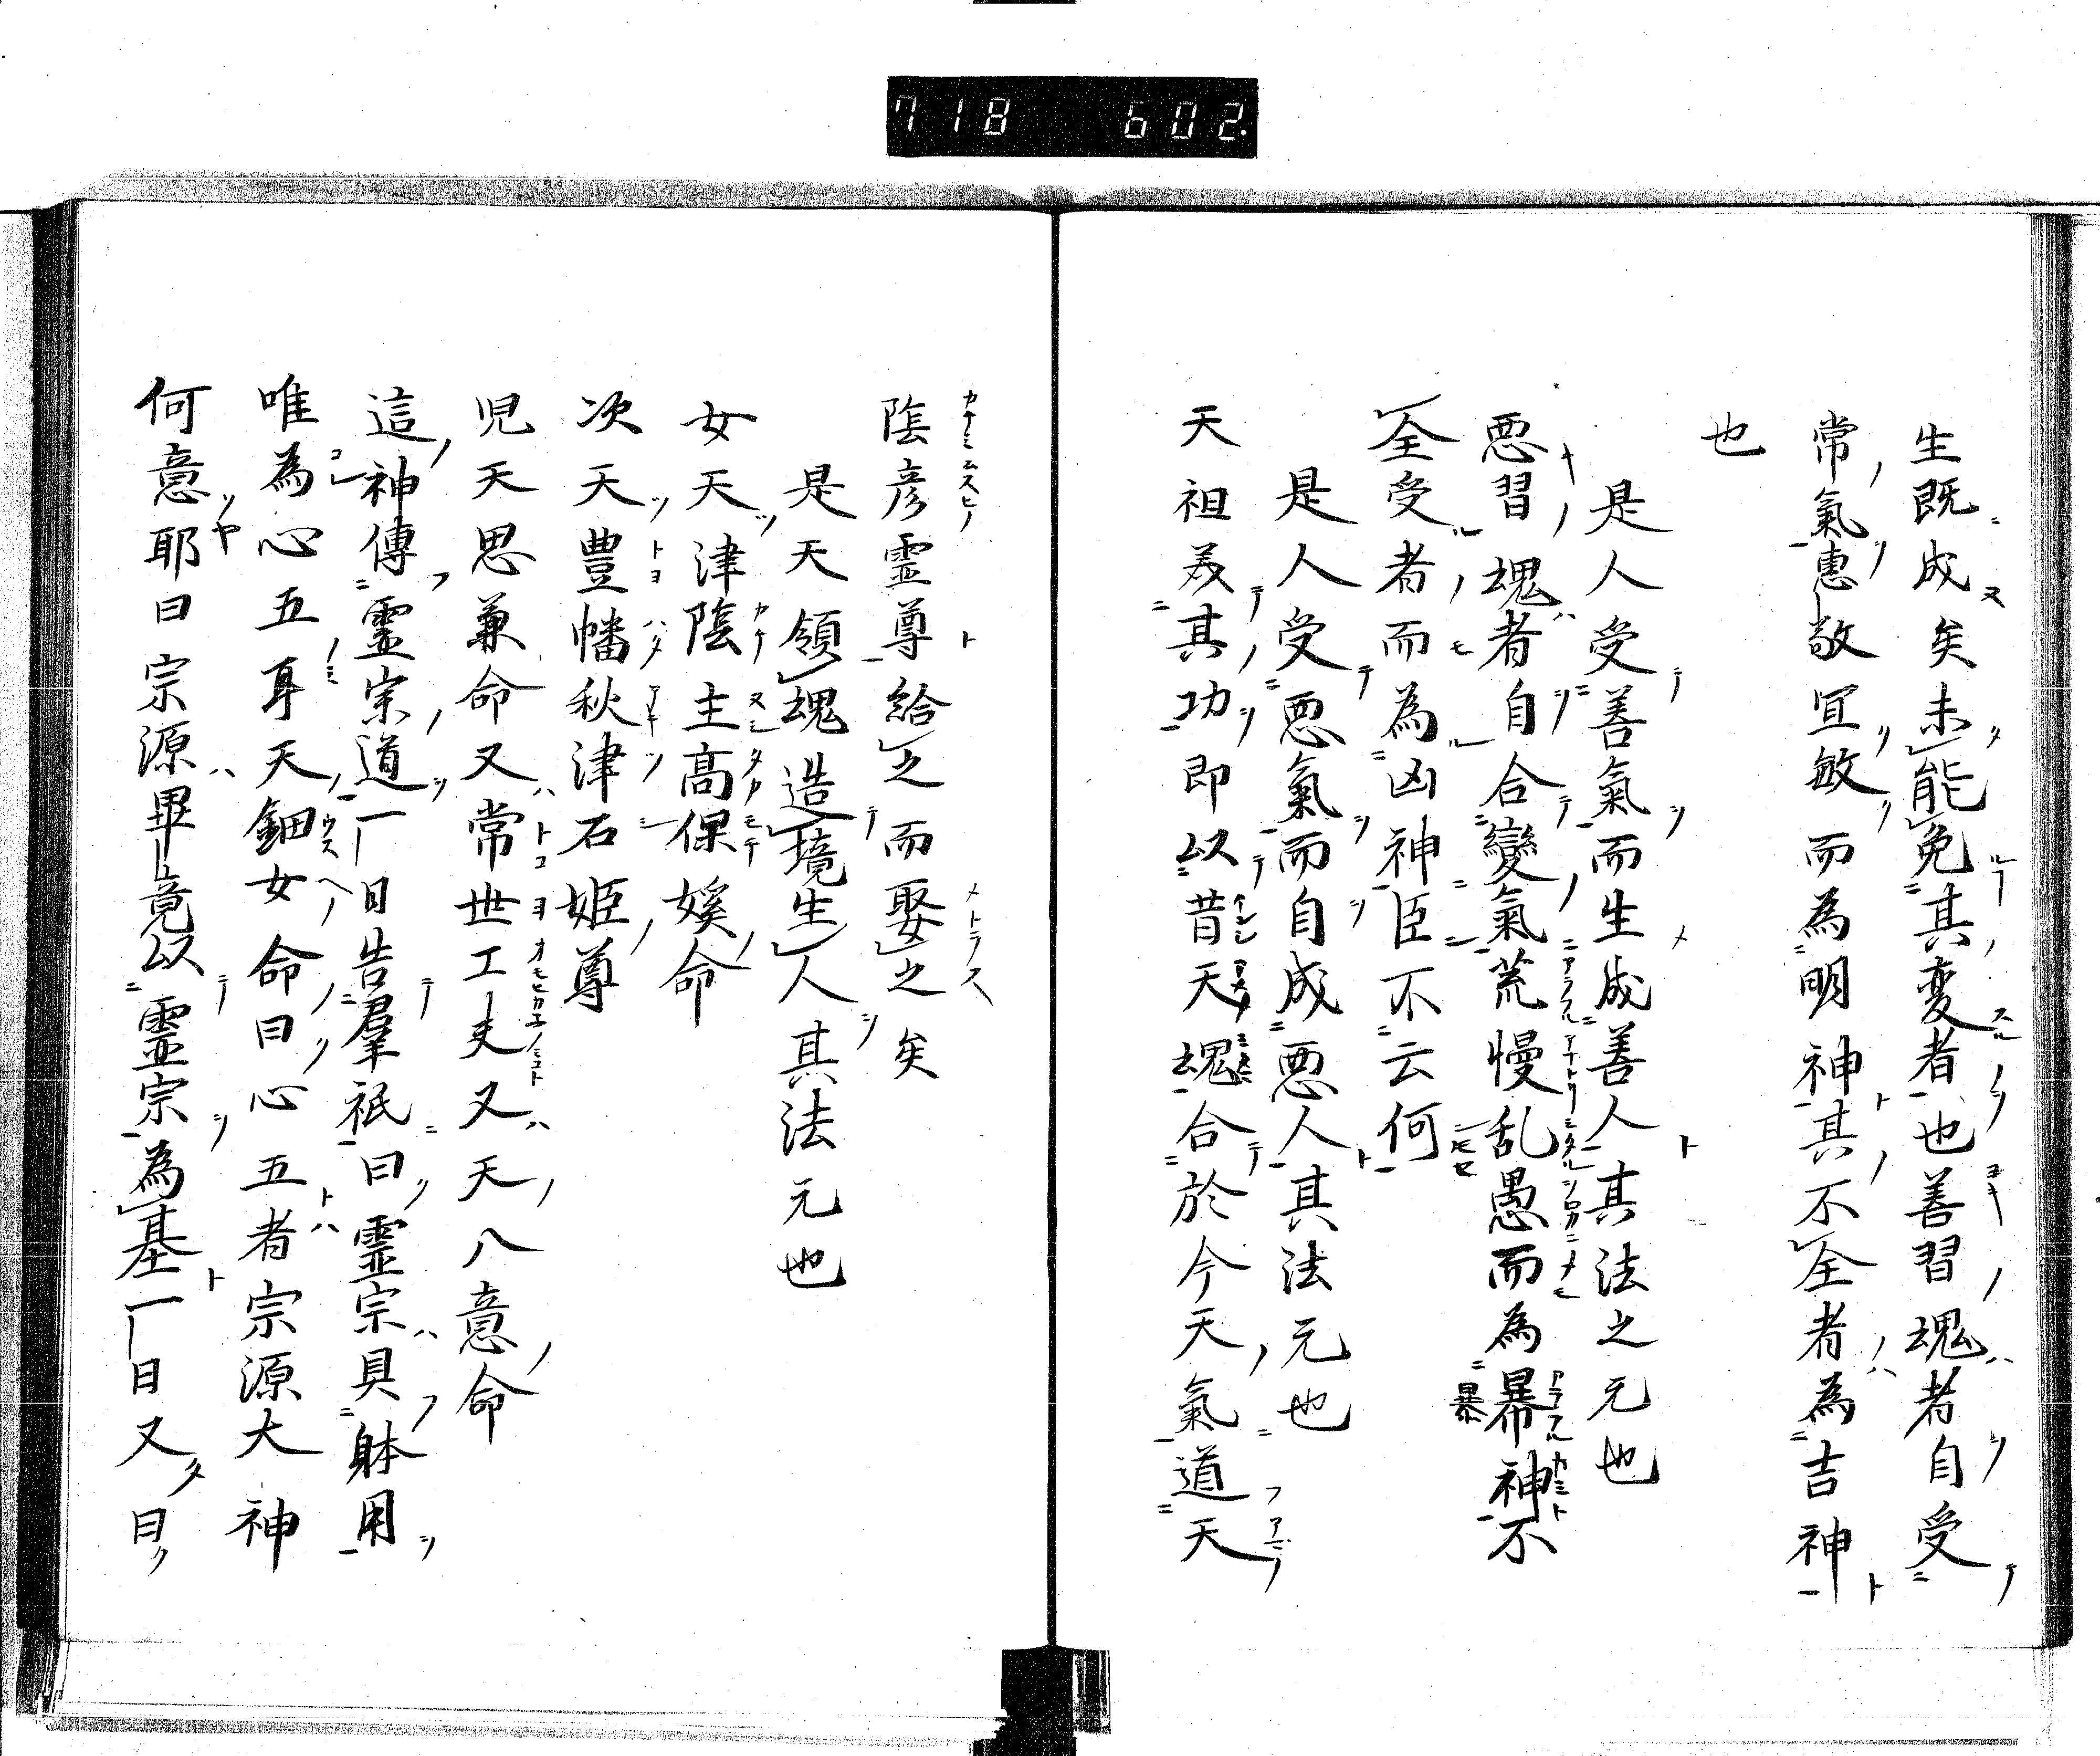 718 602.
生既成矣未能免其変者也善習魂者自受
常氣恵敬冝敏而為明神其不全者為吉神
也
是人受善氣而生成善人其法之元也
悪習魂者自合變氣荒慢乱愚而為暴神不
暴
全受者而為凶神臣不云何
是人受悪氣而自成悪人其法元也
天祖美其功即以昔天魂合於今天氣道天
陰彦霊尊給之而娶之矣
是天領魂造境生人其法元也
女天津陰主高保媄命
次天豊幡秋津石姫尊
児天思兼命又常世工夫又天八意命
這神傳霊宗道一日告羣祇曰霊宗具躰用
唯為心五耳天鈿女命曰心五者宗源大神
何意耶曰宗源畢竟以霊宗為基一日又曰